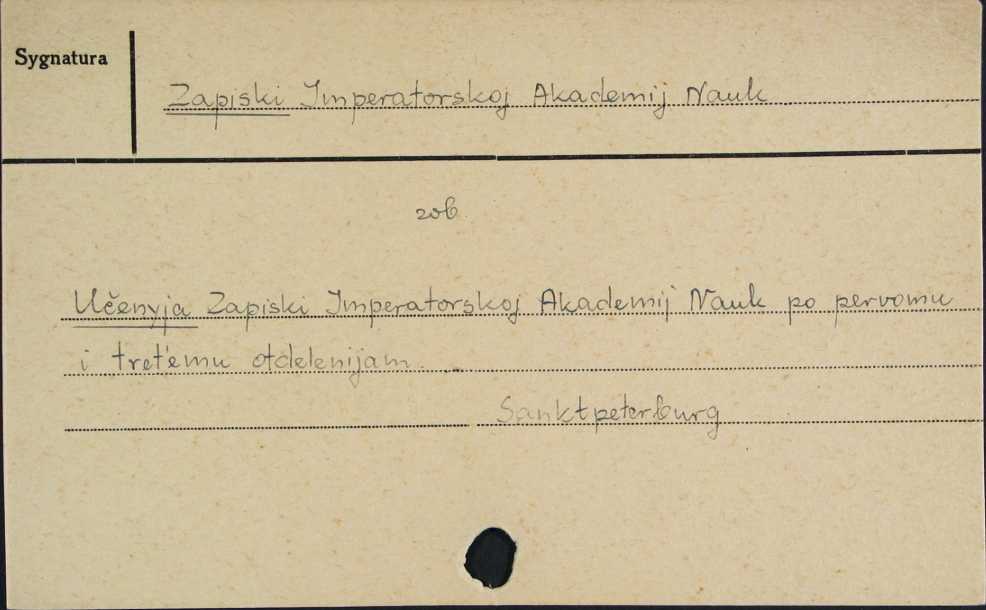 Sygnatura
Zapiski Imperatorskoj Akademij Nauk
zob
Učenyja Zapiski Imperatorskoj Akademij Nauk po pervomu
i tret'emu otdelenijam.
Sanktpeterburg